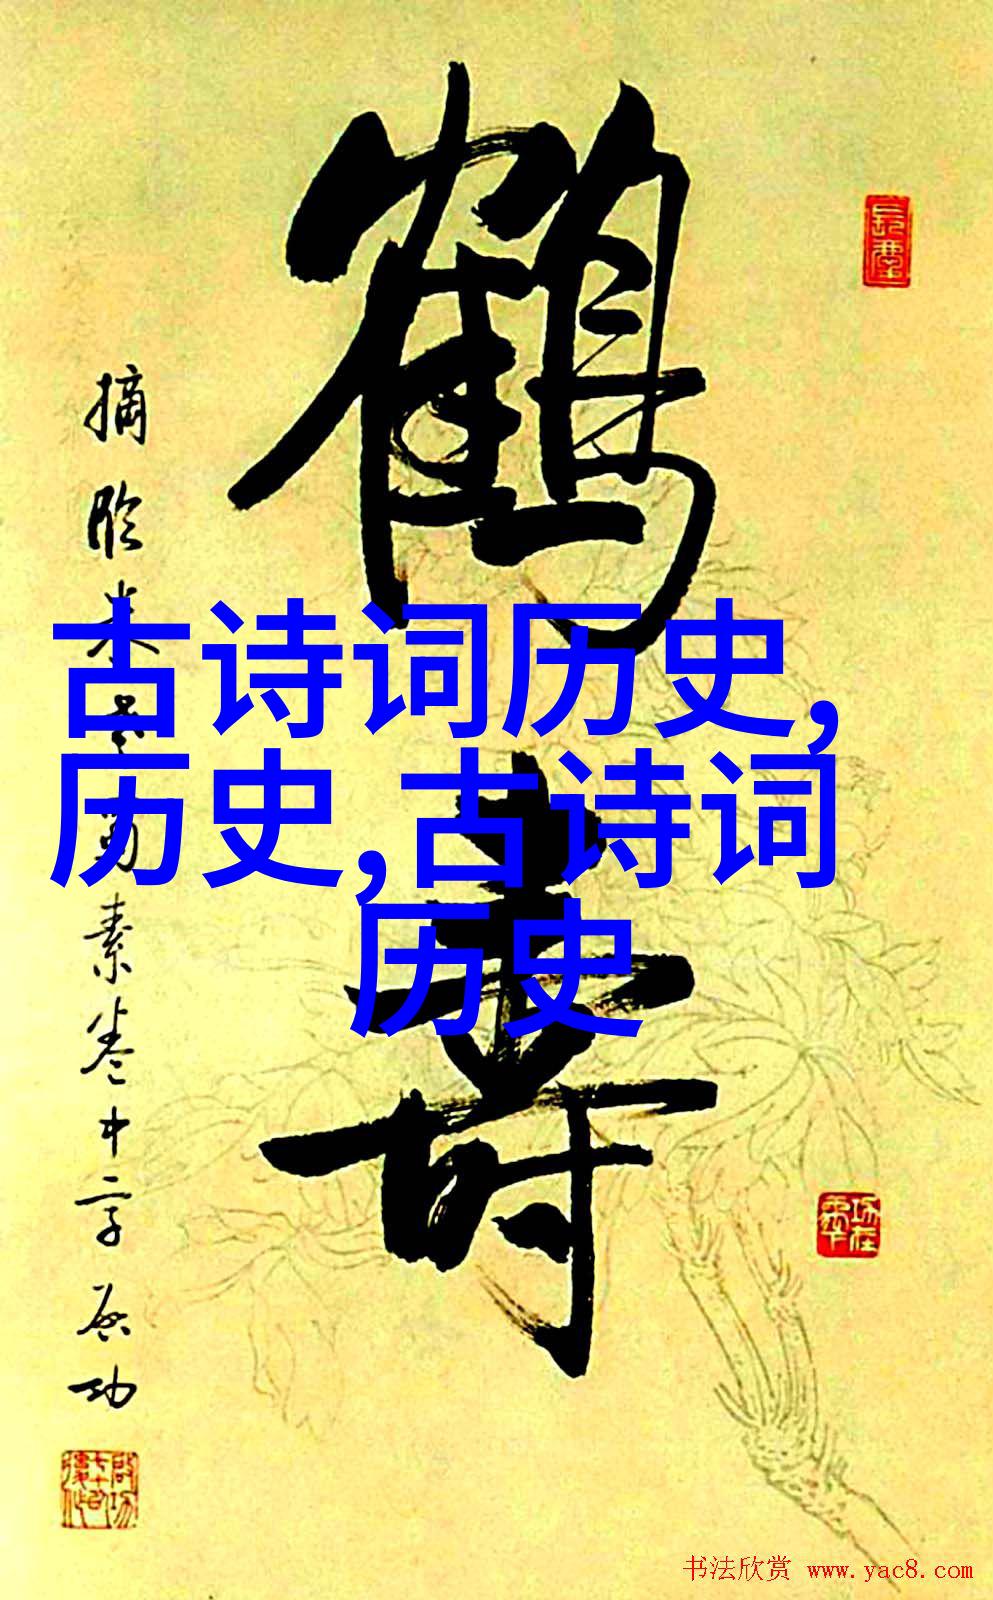 鹤寿
摘临米蜀素卷中字启功
古诗词历史,
历史,古诗词
历史
书法欣赏 www.yac8.com